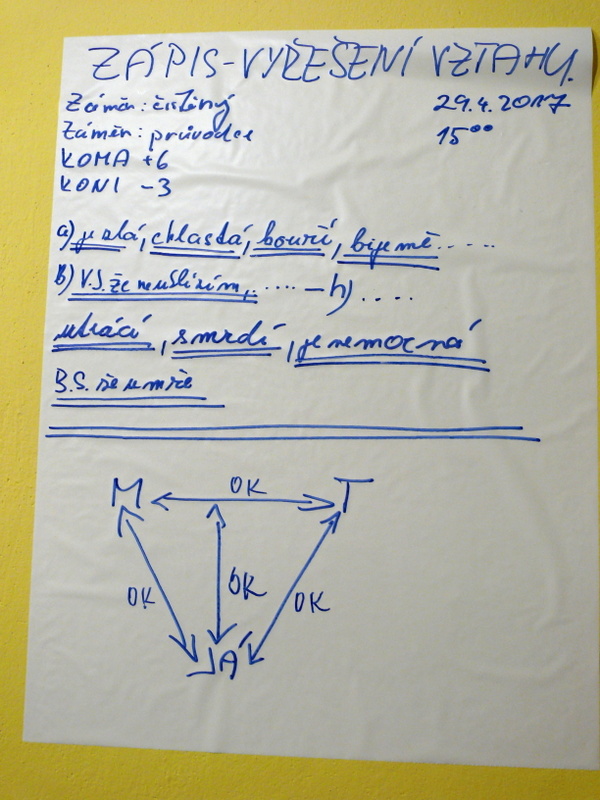 ZÁPIS-VYŘEŠENÍ VZTAHU.
Záměr: čištěný
29.4.2017
Záměr: průvodce
15ºº
KOMA +6
KONI -3
a) je zlá, chlastá, bouří, bije mě.....
B) V.S. že neuslyším,.... -h)....
utrácí, smrdí, je nemocná
B.S. že umře
M OK T
OK OK OK
JÁ